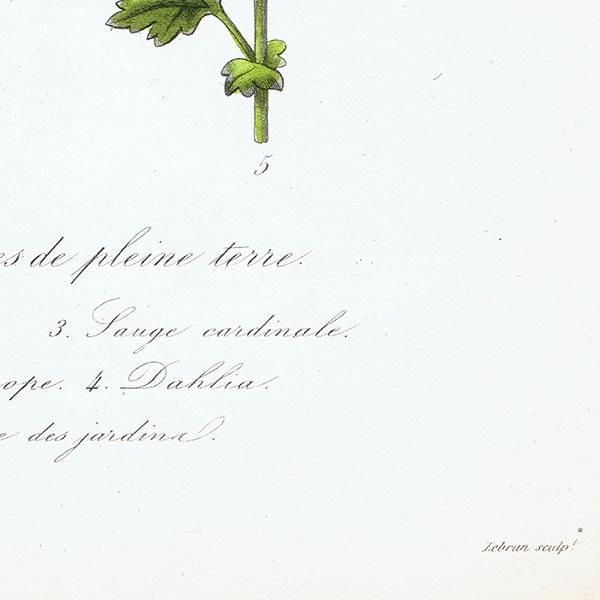 5
es de pleine terre.
3. Sauge cardinale.
ope. 4. Dahlia.
e des jardins.
Lebrun sculpt